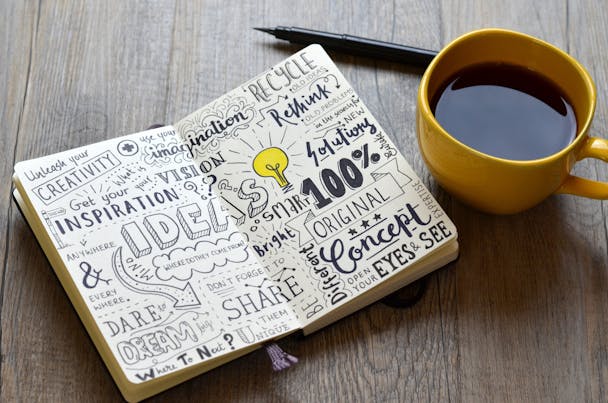 Unleash your
CREATIVITY
use your
imagination
What is
your
VISION
?
Get your
INSPIRATION
ANYWHERE
&
EVERY
WHERE
IDEAS
MIND
WHERE DO THEY COME FROM?
DON'T FORGET
TO
SHARE
THEM
DARE
TO
DREAM big
UNIQUE
Where To Next?
RECYCLE
OLD IDEAS
Rethink
OLD PROBLEMS
in the search for
NEW
Solutions
smart
100%
ORIGINAL
Bright
Concept
BE
Different
OPEN
YOUR
EYES & SEE
EXPERTISE